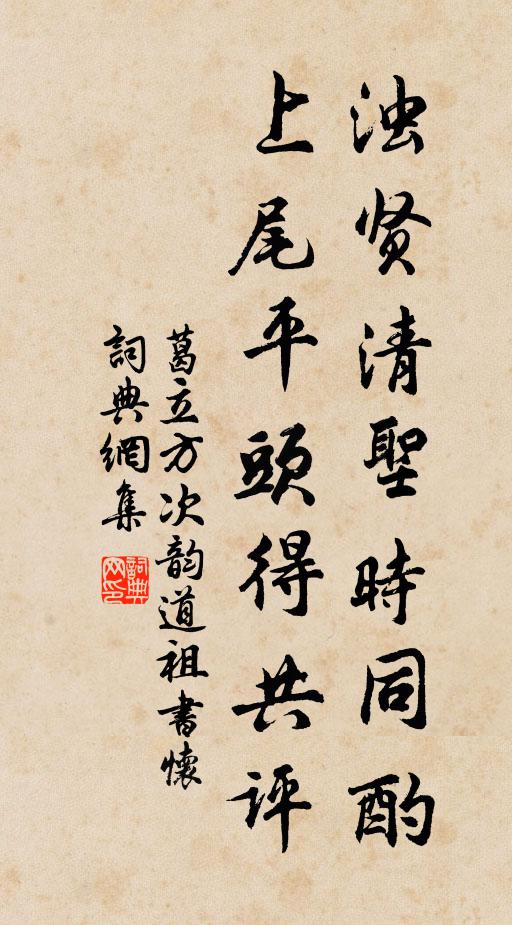 浊贤清聖時同酌
上尾平頭得共评
葛立方次韵道祖書懷
詞典網集
詞典网印